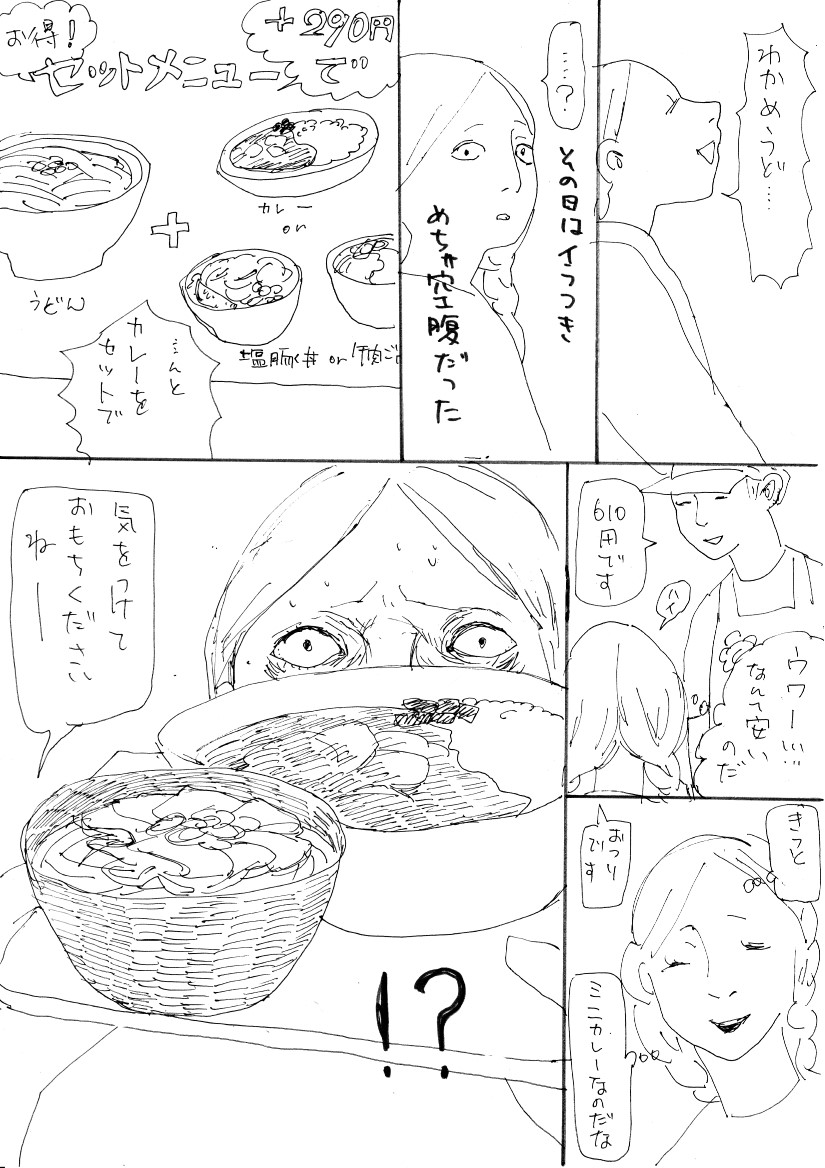 わかめうどん……
……？
その日はイラつき
めちゃ空腹だった
お得！
+290円
セットメニューで
カレー
or
うどん
塩豚丼 or
…んと
カレーを
セットで
610円です
ハイ
ウワー!!…
なんて安い
のだ
きっと
おつり
です
ミニカレーなのだな
気をつけて
おもちください
ねー
!?